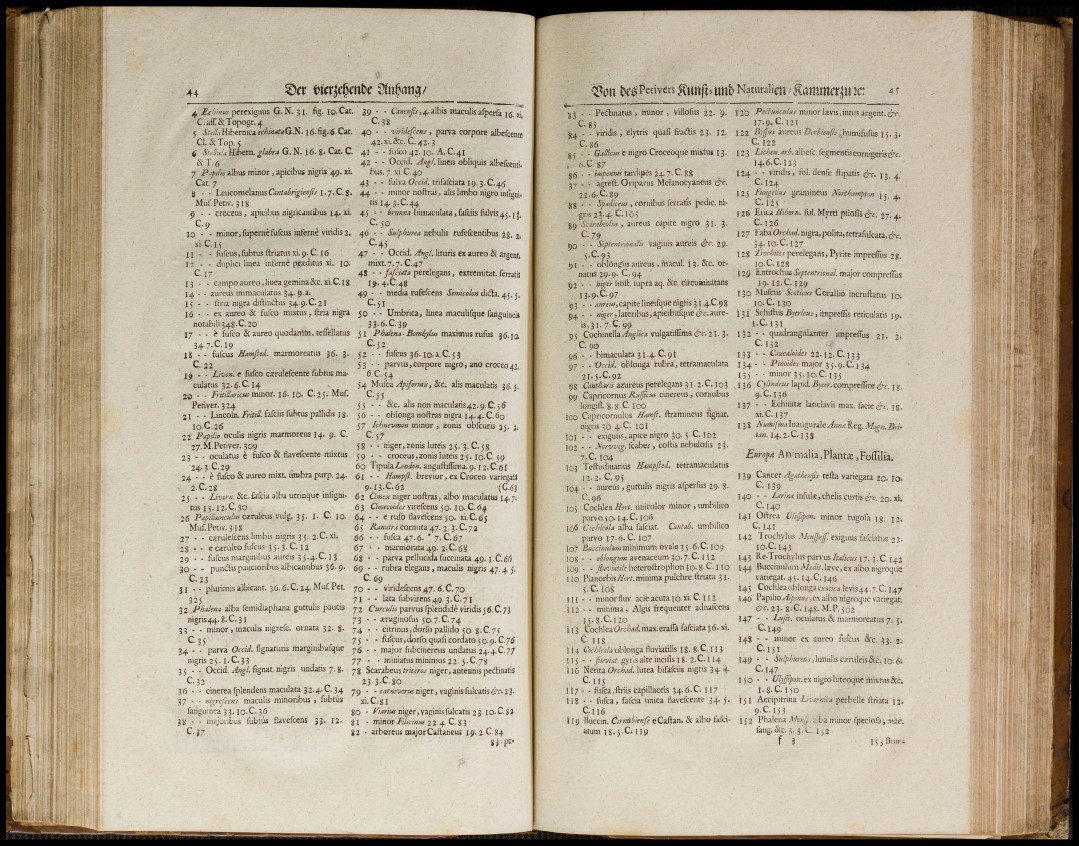 44 Der vierzehende Anhang/
4 Echinus perexiguus G. N. 31. fig. 10. Cat.
Cl. aff. & Topogr. 4
5 Stella Hibernica echinata G. N. 16. fig. 6. Cat.
Cl. & Top. 5
6 Stellula Hibern. glabra G. N. 16. 8. Cat. C.
& T. 6
7 Papilio albus minor, apicibus nigris 49. xi.
Cat. 7
8 - - Leucomelanus Cantabrigiensis 1. 7. C. 8.
Mus. Petiv. 318
9 - - croceus, apicibus nigricantibus 14. xi.
C. 9
10 - - minor, superne fuscus inferne viridis 2.
xi. C. 15
11 - - fuscus, subtus striatus xi. 9. C. 16
12 - - duplici linea inferne præditus xi. 10.
C. 17
13 - - campo aureo, linea gemina &c. xi. C. 18
14 - - aureus immaculatus 34. 9. a.
15 - - stria nigra distinctus 34. 9. C. 21
16 - - ex aureo & fusco mixtus, stria nigra
notabili 348. C. 20
17 - - è fusco & aureo quodamm. tessellatus
34. 7. C. 19
18 - - fuscus Hamsted. marmoreatus 36. 3.
C. 22
19 - - Livon. e fusco cærulescente subtus maculatus
32. 6. C. 14
20 - - Fritillaricus minor. 16. 10. C. 25. Mus.
Petiver. 324
21 - - Lincoln. Fritil. fasciis subtus pallidis 18.
10. C. 26
22 Papilio oculis nigris marmoreus 14. 9. C.
27. M. Petiver. 309
23 - - oculatus è fusco & flavescente mixtus
24. 3. C. 29
24 - - è fusco & aureo mixt. umbra purp. 24.
2. C. 28
25 - - Livorn. &c. fascia alba utrinque insignitus
15. 12. C. 30
26 Papiliunculus cæruleus vulg. 35. 1. C. 10.
Mus. Petiv. 318
27 - - cærulescens limbo nigris 35. 2. C. xi.
28 - - e cæruleo fuscus 35. 3. C. 12
29 - - fuscus marginibus aureis 35. 4. C. 13
30 - - punctis paucioribus albicantibus 36. 9.
C. 23
31 - - plurimis albicant. 36. 6. C. 24. Mus. Pet.
325
32 Phalena alba semidiaphana guttulis paucis
nigris 44. 8. C. 31
33 - - minor, maculis nigresc. ornata 32. 8.
C. 35
34 - - parva Occid. signaturis marginibusque
nigris 25. 1. C. 33
35 - - Occid. Angl. signat. nigris undatis 7. 8.
C. 32
36 - - cinerea splendens maculata 32. 4. C. 34
37 - - nigrescens maculis minoribus, subtus
sanguinea 33. 10. C. 36
38 - - majoribus subtus flavescens 33. 12.
C. 37
39 - - Cinensis, 4. albis maculis aspersa 16. xi.
C. 38
40 - - viridescens, parva corpore albescente
42. xi. &c. C. 2. 3
41 - - fusca 42. 10. A. C. 41
42 - - Occid. Angl. lineis obliquis albescentibus.
7. xi. C. 40
43 - - fulva Occid. trifasciata 19. 3. C. 46
44 - - minor nostras, alis limbo nigro insignitis
14. 3. C. 44
45 - - brunna bimaculata, fasciis fulvis 45. 13.
C. 50
46 - - Sulphurea nebulis rufescentibus 28. 2.
C. 45
47 - - Occid. Angl. lituris ex aureo & argent.
mixt. 7. 7. C. 47
48 - - fasciata perelegans, extremitat. serratis
19. 4. C. 48
49 - - media rufescens Semicolon dicta. 45. 5.
C. 51
50 - - Umbrica, linea maculisque sanguineis
33. 6. C. 39
51 Phalena-Bombylus maximus rufus 36. 10.
C. 52
52 - - fuscus 36. 10. a. C. 53
53 - - parvus, corpore nigro, ano croceo 42.
6. C. 54
54 Musca Apiformis, &c. alis maculatis 36. 5.
C. 55
55 - - &c. alis non maculatis 42. 9. C. 56
56 - - oblonga nostras nigra 14. 4. C. 60
57 Ichneumon minor, zonis obscuris 25. 1.
C. 57
58 - - niger, zonis luteis 25. 3. C. 58
59 - - croceus, zonis luteis 25. 10. C. 59
60 Tipula London. angustissima. 9. 12. C. 61
61 - - Hampst. brevior, ex Croceo variegata
9. 13. C. 62 (C. 63
62 Cimex niger nostras, albo maculatus 14. 7.
63 Cimicoides virescens 50. 10. C. 64
64 - - e rufo flavescens 50. xi. C. 65
65 Ranatra cornuta 47. 2. 3. C. 72
66 - - fusca 47. 6. * 7. C. 67
67 - - marmorata 49. 2. C. 68
68 - - parva pellucida succinata 49. 1. C. 66
69 - - rubra elegans, maculis nigris 47. 4. 5.
C. 69
70 - - viridescens 47. 6. C. 70
71 - - lata subvirens 49. 3. C. 71
72 Curculio parvus splendidè viridis 56. C. 73
73 - - æruginosus 50. 7. C. 74
74 - - citrinus, dorso pallido 50. 8. C. 75
75 - - fuscus, dorso quasi cordato 50. 9. C. 76
76 - - major subcinereus undatus 24. 4. C. 77
77 - - miniatus minimus 22. 5. C. 78
78 Scarabeus triceros niger, antennis pectinatis
23. 3. C. 80
79 - - carnivorus niger, vaginis sulcatis &c. 23.
xi. C. 81
80 - Viarius niger, vaginis sulcatis 23. 10. C. 82
81 - minor Filicinus 22. 4. C. 83
82 - arboreus major Castaneus 19. 2. C. 84
83 - pe-
Von des Petivers Kunst- und Naturalien-Kammer zu &c. 45
83 - - Pectinatus, minor, villosus 22. 9.
C. 85
84 - - viridis, elytris quasi fractis 23. 12.
C. 86. 3
85 - - Gallicus e nigro Croceoque mixtus 13.
6. C. 87
86 - - impennis tardipes 24. 7. C. 88
87 - - agrest. Oviparus Melanocyaneus &c.
22. 6. C. 89
88 - - Spadiceus, cornibus serratis pedic. nigris
23. 4. C. 105
89 Scarabeolus, aureus capite nigro 31. 3.
C. 79
90 - - Septentrionalis vaginis aureis &c. 29.
5. C. 93
91 - - oblongus aureus, macul. 13. &c. ornatus
29. 9. C. 94
92 - - niger nost. supra aq. &c. circumnatans
13. 9. C. 97
93 - - aureus, capite lineisque nigris 31. 4. C. 98
94 - - niger, lateribus, apicibusque &c. aureis,
31. 7. C. 99
95 Cochinella Anglica vulgatissima &c. 21. 3.
C. 90
96 - - bimaculata 31. 4. C. 91
97 - - Occid. oblonga rubra, tetramaculata
21. 5. C. 92
98 Cantharis azureus perelegans 31. 2. C. 103
99 Capricornus Russicus cinereus, cornubus
longiss. 8. 8. C. 100
100 Capricornulus Hamst. stramineus signat.
nigris 30. 4. C. 101
101 - - exiguus, apice nigro 30. 5. C. 102
102 - - Norweg. scaber, costis nebulosis 23.
7. C. 104
103 Testudinarius Hampsted. tetramaculatus
12. 2. C. 95
104 - - aureus, guttulis nigris aspersus 29. 8.
C. 96
105 Cochlea Hort. unicolor minor, umbilico
parvo 50. 14. C. 106
106 Cochleola alba fasciat. Cantab. umbilico
parvo 17. 6. C. 107
107 Buccinulum minimum ovale 35. 6. C. 109
108 - - oblongum avenaceum 30. 7. C. 112
109 - - fluviatile heterostrophon 10. 8. C. 110
110 Planorbis Hort. minima pulchre striata 31.
5. C. 108
111 - - minor fluv. acie acuta 10. xi. C. 112
112 - - minima, Algis frequenter adnascens
15. 8. C. 120
113 Cochlea Orchad. max. crassa fasciata 36. xi.
C. 118
114 Cochleola oblonga fluviatilis 18. 8. C. 113
115 - - fluviat. gyris alte incisis 18. 2. C. 114
116 Nerita Orchad. lutea bifasciis nigris 34. 4.
C. 115
117 - - fusca, striis capillaceis 34. 6. C. 117
118 - - fusca, fascia unica flavescente 34. 5.
C. 116
119 Buccin. Cantabiense e Castan. & albo fasciatum
18. 5. C. 119
120 Pectunculus minor lævis, intus argent. &c.
17. 9. C. 121
122 Byssus aureus Derbiensis, humifusus 15. 3.
C. 122
123 Lichen. arb. albesc. segmentis cornigeris &c.
14. 6. C. 123
124 - - viridis, fol. dense stipatis &c. 13. 4.
C. 124
125 Fungulus gramineus Northampton 15. 4.
C. 125
126 Erica Hibern. fol. Myrti pilosis &c. 27. 4.
C. 126
127 Faba Orchad. nigra, polita, tetrasulcata, &c.
34. 10. C. 127
128 Trochites perelegans, Pyrite impressus 28.
10. C. 128
129 Entrochus Septentrional. major compressus
19. 12. C. 129
130 Muscus Scoticus Corallio incrustatus 10.
10. C. 130
131 Schistus Byerleus, impressis reticulatis 19.
1. C. 131
132 - - quadrangulariter impressus 21. 2.
C. 132
133 - - Cuncaloides 22. 12. C. 133
134 - - Pinoides major 35. 9. C. 134
135 - - minor 35. 10. C. 135
136 Cylindrus lapid. Byer. compressior &c. 18.
9. C. 136
137 - - Echinitæ lanclavii max. facie &c. 18.
xi. C. 137
138 Numisma Inaugurale Annæ Reg. Magn. Britan.
14. 2. C. 138
Europæ Animalia, Plantæ, Fossilia.
139 Cancer Agathensis testa variegata 20. 10.
C. 139
140 - - Lerinæ insulæ, chelis curtis &c. 20. xi.
C. 140
141 Ostrea Ulissipon. minor rugosa 18. 12.
C. 141
142 Trochylus Monspess. exiguus fasciatus 22.
10. C. 143
143 Re-Trochylus parvus Italicus 17. 1. C. 142
144 Buccinulum Medit. læve, ex albo nigroque
variegat. 45. 14. C. 146
145 Cochlea oblonga exotica levis 44. 7. C. 147
146 Papilio Alpinus, ex albo nigroque variegat.
&c. 23. 8. C. 148. M. P. 502
147 - - Lusit. oculatus & marmoreatus 7. 5.
C. 149
148 - - minor ex aureo fuscus &c. 33. 2.
C. 151
149 - - Sulphureus, lunulis cæruleis &c. 10. 6.
C. 147
150 - - Ulyssipon. ex nigro luteoque mixtus &c.
1. 8. C. 150
151 Accipitrina Livornica perbelle striata 12.
9. C. 153
152 Phalena Monsp. alba minor speciosa, mac.
sang. &c. 3. 3. C. 152
f 3 153 Bom-